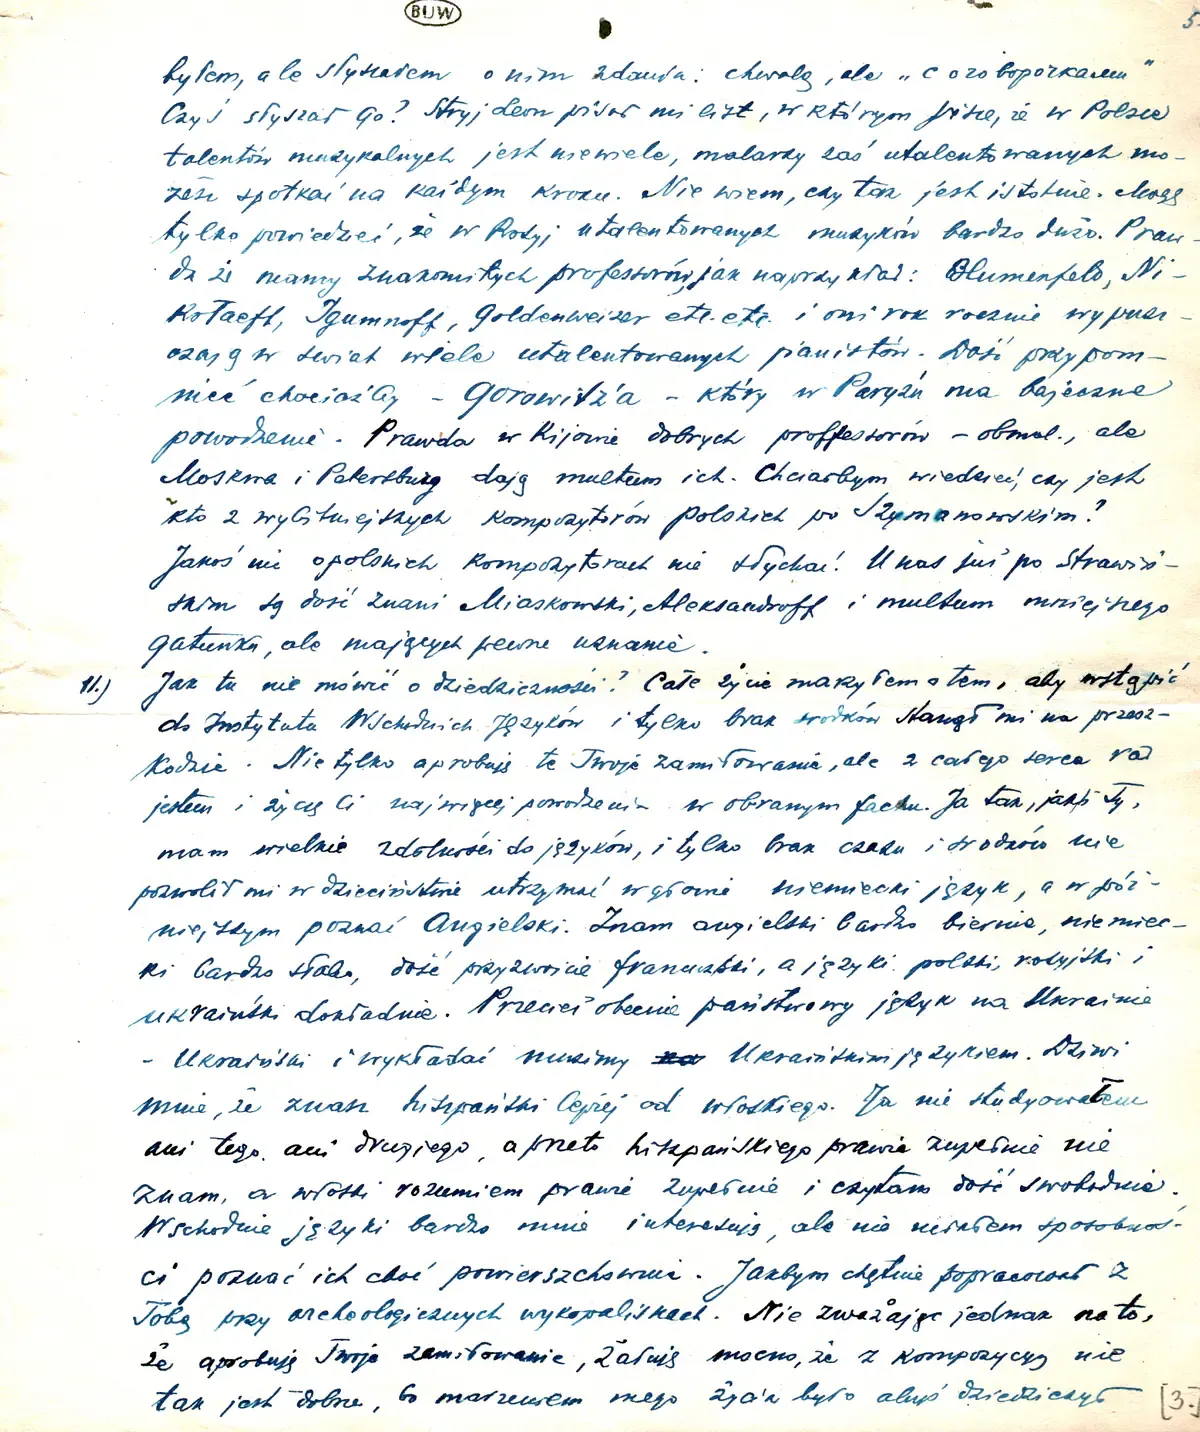 BUW
5.
byłem, ale słyszałem o nim zdania: chwalą, ale „с оговорками"
Czyś słyszał Go? Stryj Leon pisał mi list, w którym pisze, że w Polsce
talentów muzykalnych jest niewiele, malarzy zaś utalentowanych mo-
żesz spotkać na każdym kroku. Nie wiem, czy tak jest istotnie. Mogę
tylko powiedzieć, że w Rosyj utalentowanych muzyków bardzo dużo. Praw-
da że mamy znakomitych professorów, jak naprzykład: Blumenfeld, Ni-
kołaeff, Igumnoff, Goldenweiser etc. etc. i oni rok rocznie wypusz-
czają w świat wiele utalentowanych pianistów. Dość przypom-
nieć chociażby - Gorowitz'a - który w Paryżu ma bajeczne
powodzenie. Prawda w Kijowie dobrych proffessorów - obmal., ale
Moskwa i Petersburg dają multum ich. Chciałbym wiedzieć, czy jest
kto z wybitniejszych kompozytorów polskich po Szymanowskim?
Jakoś nic o polskich kompozytorach nie słychać! U nas już po Strawiń-
skim są dość znani Miaskowski, Aleksandroff i multum mniejszego
gatunku, ale mających pewne uznanie.
11.) Jak tu nie mówić o dziedziczności? Całe życie marzyłem o tem, aby wstąpić
do Instytutu Wschodnich Języków i tylko brak środków stanął mi na przesz-
kodzie. Nie tylko aprobuję te Twoje zamiłowanie, ale z całego serca rad
jestem i życzę Ci najwięcej powodzenia w obranym fachu. Ja tak, jak i Ty,
mam wielkie zdolności do języków, i tylko brak czasu i środków nie
pozwolił mi w dzieciństwie utrzymać w głowie niemiecki język, a w póź-
niejszym poznać Angielski. Znam angielski bardzo biernie, niemiec-
ki bardzo słabo, dość przyzwoicie francuzski, a języki polski, rosyjski i
ukraiński dokładnie. Przecież obecnie państwowy język na Ukrainie
- Ukraiński i wykładać musimy Ukraińskim językiem. Dziwi
mnie, że znasz hiszpański lepiej od włoskiego. Ja nie studyowałem
ani tego, ani drugiego, a przeto hiszpańskiego prawie zupełnie nie
znam, a włoski rozumiem prawie zupełnie i czytam dość swobodnie.
Wschodnie języki bardzo mnie interesują, ale nie miałem sposobnoś-
ci poznać ich choć powierzchownie. Jakbym chętnie popracował z
Tobą przy archeologicznych wykopaliskach. Nie zważając jednak na to,
że aprobuję Twoje zamiłowanie, żałuję mocno, że z kompozycyą nie
tak jest dobrze, bo marzeniem mego życia było abyś dziedziczył
[3.]